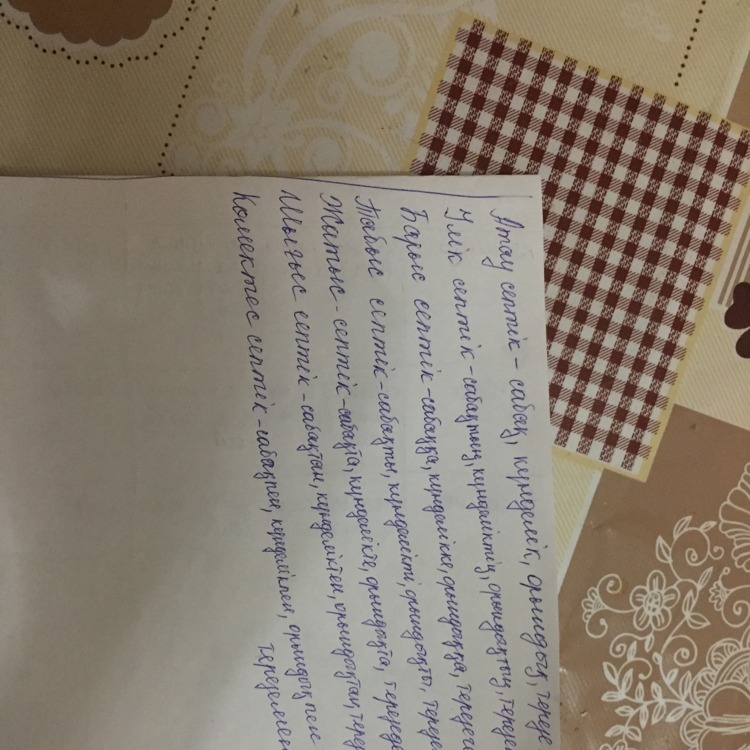 Атау септік - сабақ, күнделік, орындық, терезе
Ілік септік - сабақтың, күнделіктің, орындықтың, терезе
Барыс септік - сабаққа, күнделікке, орындыққа, терезеге
Табыс септік - сабақты, күнделікті, орындықты, терезе
Жатыс - септік - сабақта, күнделікте, орындықта, терезеде
Шығыс септік - сабақтан, күнделіктен, орындықтан, терез
Көмектес септік - сабақпен, күнделікпен, орындық пен
тереземен